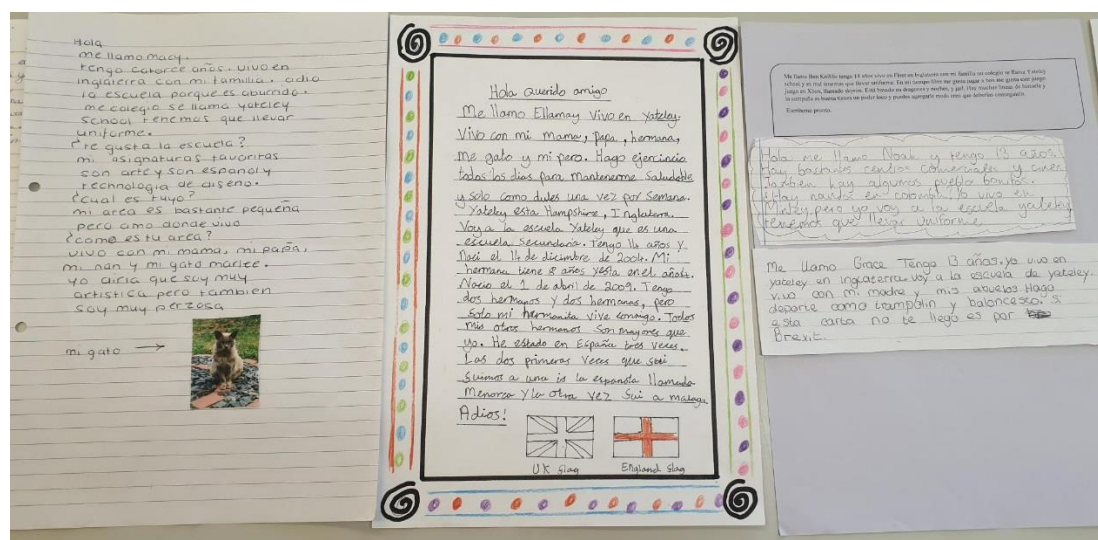 Hola
me llamo macy.
tengo catorce años. vivo en
inglaterra con mi familia. odio
la escuela porque es aburrido.
me colegio se llama yateley
school tenemos que llevar
uniforme.
¿te gusta la escuela?
mi asignaturas favoritas
son arte y son español y
technologia de diseno.
¿cual es tuyo?
mi area es bastante pequeña
pero amo donde vivo
¿come es tu area?
vivo con mi mama, mi papa,
mi nan y mi gato marlee.
yo diria que soy muy
artistica pero tambien
soy muy perzosa
mi gato
Hola querido amigo
Me llamo Ellamay Vivo en Yateley.
Vivo con mi Mama, papa, hermana,
me gato y mi pero. Hago ejercincio
todos los dias para mantenerme Saludable
y solo como dules una vez por Semana.
Yateley esta Hampshire, Inglatera.
Voy a la escuela Yateley que es una
escuela Secundaria. Tengo 14 años y
Naci el 14 de dicimbre de 2004. Mi
hermana tiene 8 años y esta en el año 4.
Nacio el 1 de abril de 2009. Tengo
dos hermanos y dos hermanas, pero
Solo mi hermanita vive comigo. Todos
mis otros hermanos Son mayores que
yo. He estado en España tres veces.
Las dos primeras Veces que
a una is la española llamada
Menorca y la otra vez a malaga
Adios!
UK flag
England flag
Me llamo Ben tengo 14 años vivo en Fleet en Inglaterra con mi familia mi colegio se llama Yateley
school y es mal tenemos que llevar uniforme. En mi tiempo libre me gusta jugar a
juego en Xbox, llamado
la
Escríbeme pronto.
Hola me llamo Noah y tengo 13 años.
Hay bastantes centros comerciales y cines
Tambien hay algunos pueblo bonitos.
Hay en yo vivo en
pero yo voy a la escuela yateley
tenemos que llevar uniforme
Me llamo Grace Tengo 13 años. yo vivo en
yateley en inglaterra. voy a la escuela de yateley.
vivo con mi madre y mis abuelos Hago
deporte como trampolin y baloncesto. Si
esta carta no te llego es por
Brexit.